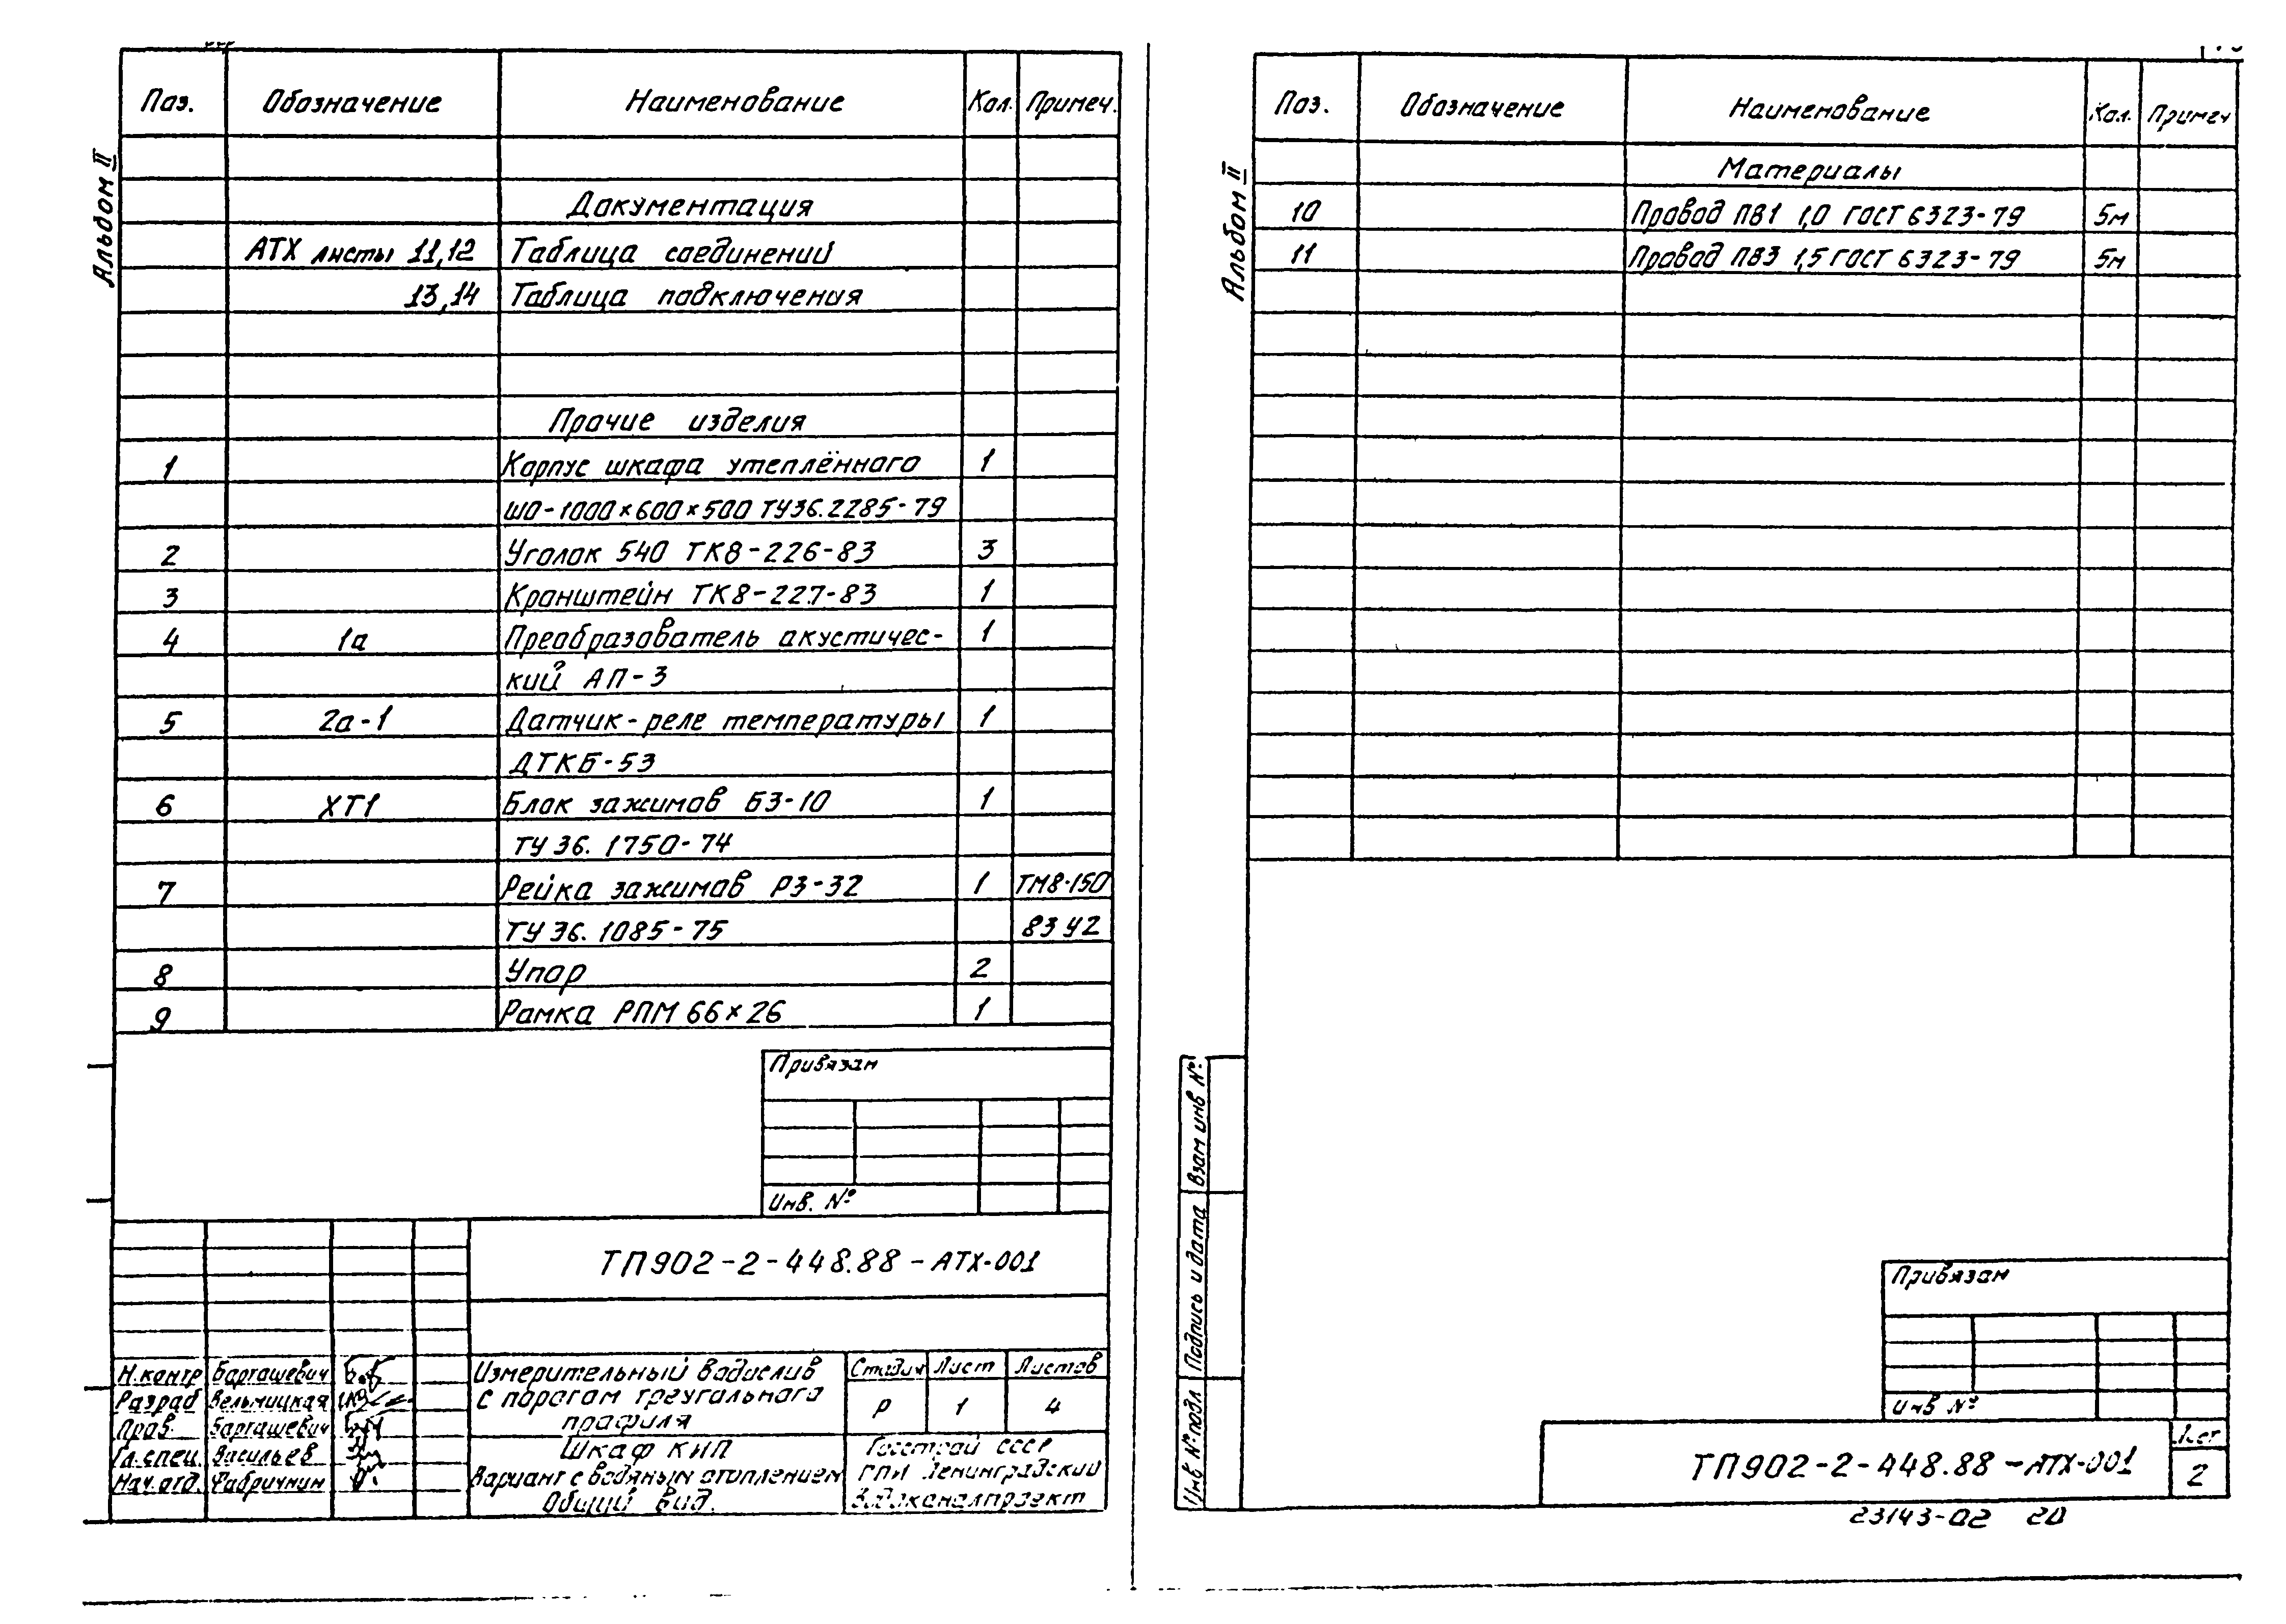 Альбом II
Поз. Обозначение Наименование Кол. Примеч.
Документация
АТХ листы 11,12 Таблица соединений
13,14 Таблица подключения
Прочие изделия
1 Корпус шкафа утеплённого 1
ШО-1000×600×500 ТУ36.2285-79
2 Уголок 540 ТК8-226-83 3
3 Кронштейн ТК8-227-83 1
4 1а Преобразователь акустичес- 1
кий АП-3
5 2а-1 Датчик-реле температуры 1
ДТКБ-53
6 ХТ1 Блок зажимов БЗ-10 1
ТУ 36. 1750-74
7 Рейка зажимов РЗ-32 1 ТМ8-150
ТУ 36. 1085-75 83 У2
8 Упор 2
9 Рамка РПМ 66×26 1
Привязан
Инв. №
ТП902-2-448.88-АТХ-001
Н.контр Барташевич
Разраб Вельмицкая
Пров. Барташевич
Гл.спец. Васильев
Нач.отд. Фабричнин
Измерительный водослив
с порогом треугольного
профиля
Шкаф КИП
Вариант с водяным отоплением
Общий вид.
Стадия Лист Листов
Р 1 4
Госстрой СССР
ГПИ Ленинградский
Водоканалпроект
Альбом II
Поз. Обозначение Наименование Кол. Примеч
Материалы
10 Провод ПВ1 1,0 ГОСТ 6323-79 5м
11 Провод ПВ3 1,5 ГОСТ 6323-79 5м
Взам инв №
Подпись и дата
Инв № подл
Привязан
Инв №
ТП902-2-448.88-АТХ-001
Лист
2
23143-02 20